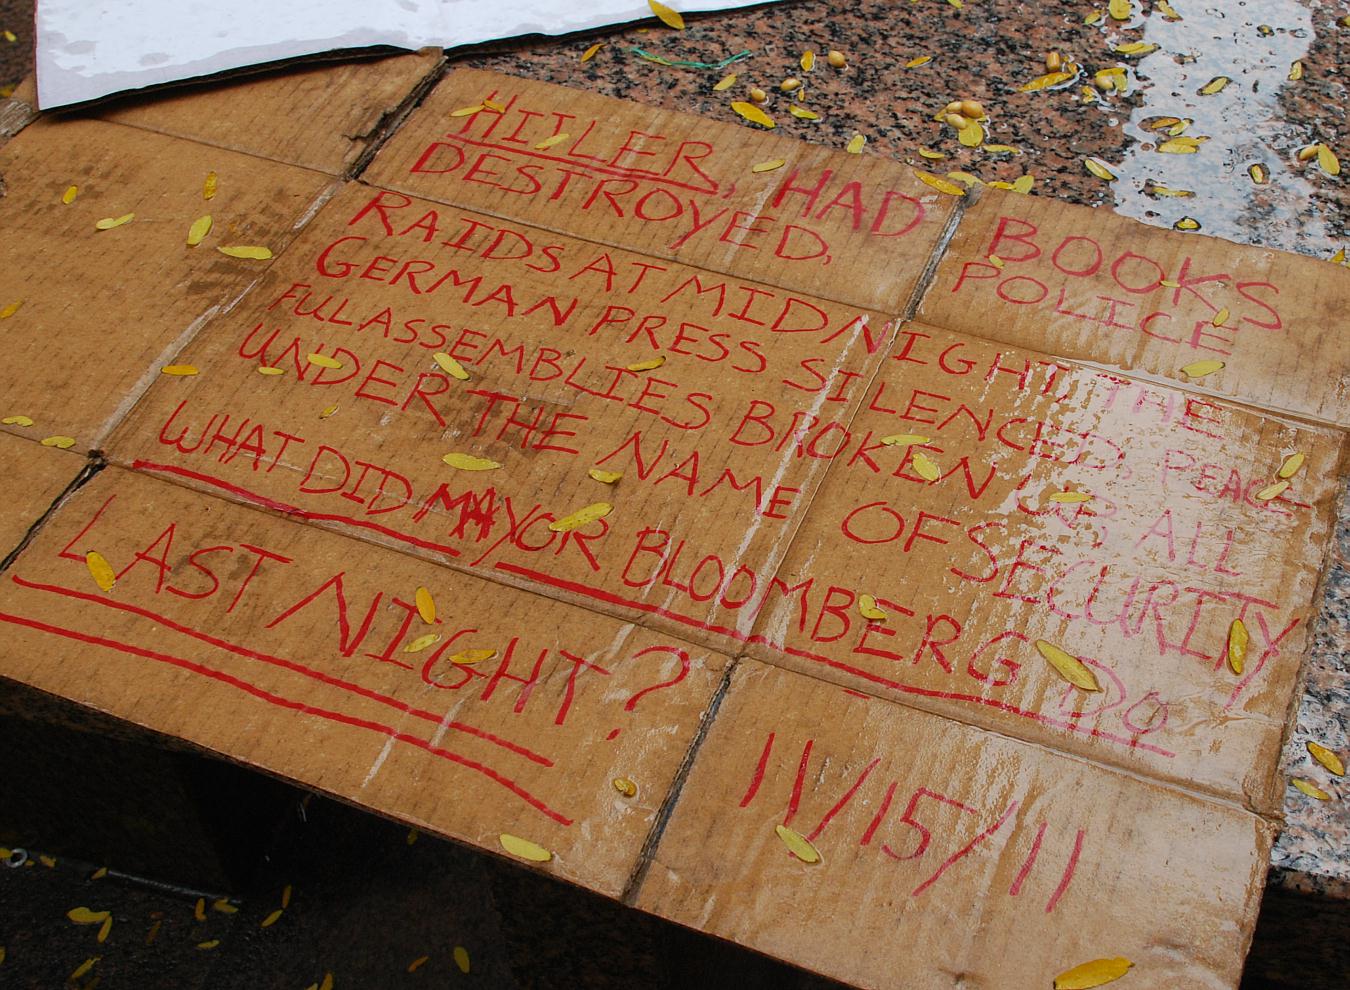 HITLER, HAD BOOKS
DESTROYED, POLICE
RAIDS AT MIDNIGHT, THE
GERMAN PRESS SILENCED, PEACE
FUL ASSEMBLIES BROKEN UP, ALL
UNDER THE NAME OF SECURITY
WHAT DID MAYOR BLOOMBERG DO
LAST NIGHT?
11/15/11